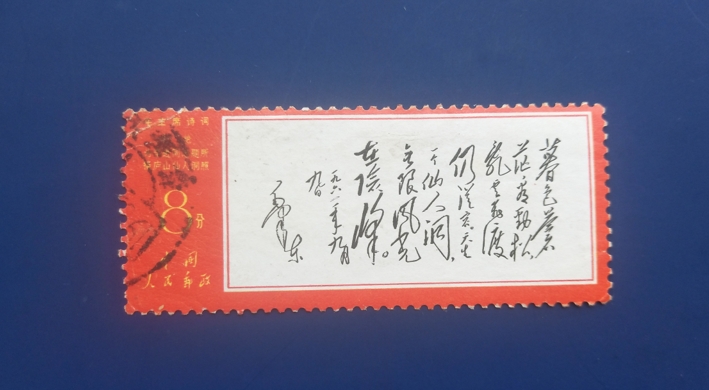 主席诗词
庐山仙人洞照
8分
中国
人民邮政
暮色苍
茫看劲松,
乱云飞渡
仍从容。天生
一个仙人洞,
无限风光
在险峰。
一九六一年九月
九日
毛泽东